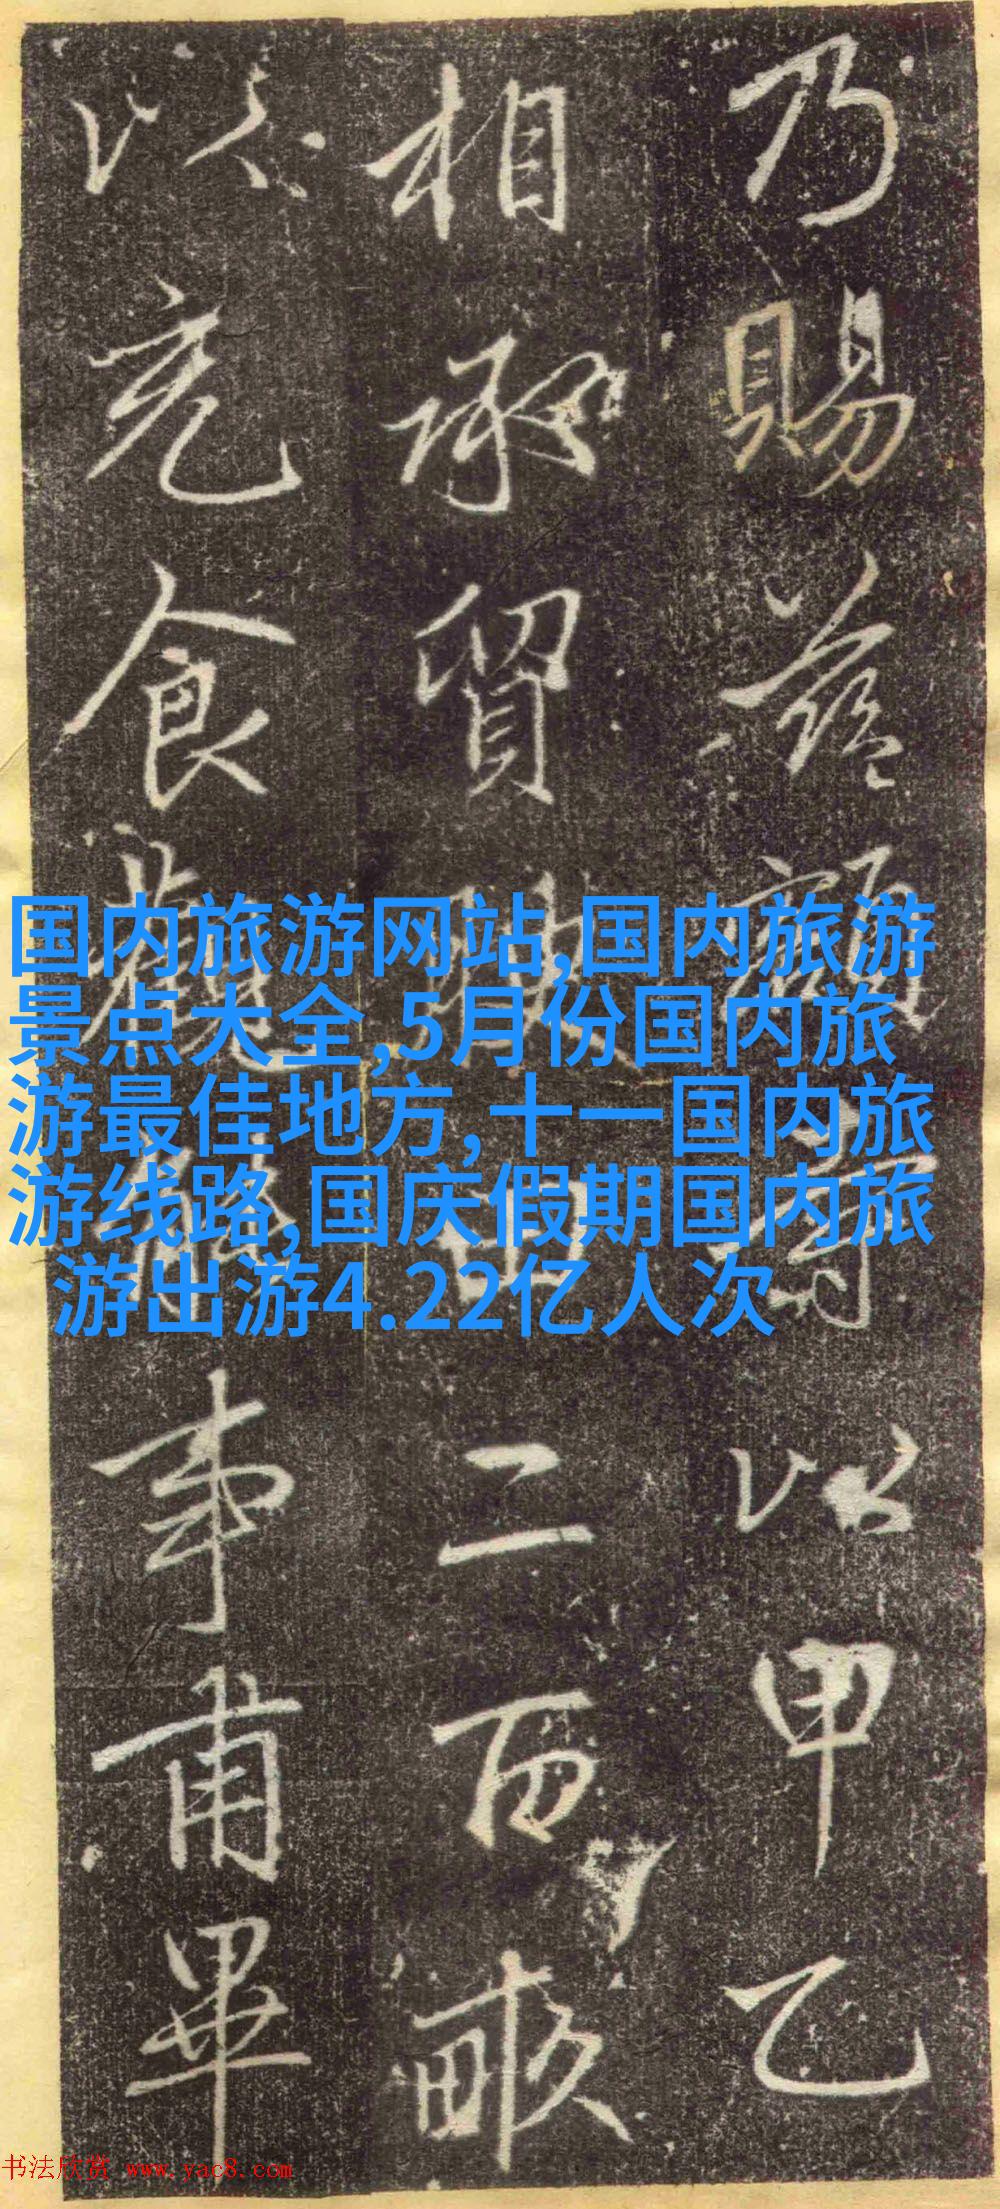 乃賜額以甲乙
相承貿田二百畝
以充食事甫畢
国内旅游网站,国内旅游
景点大全,5月份国内旅
游最佳地方,十一国内旅
游线路,国庆假期国内旅
游出游4.22亿人次
书法欣赏 www.yac8.com